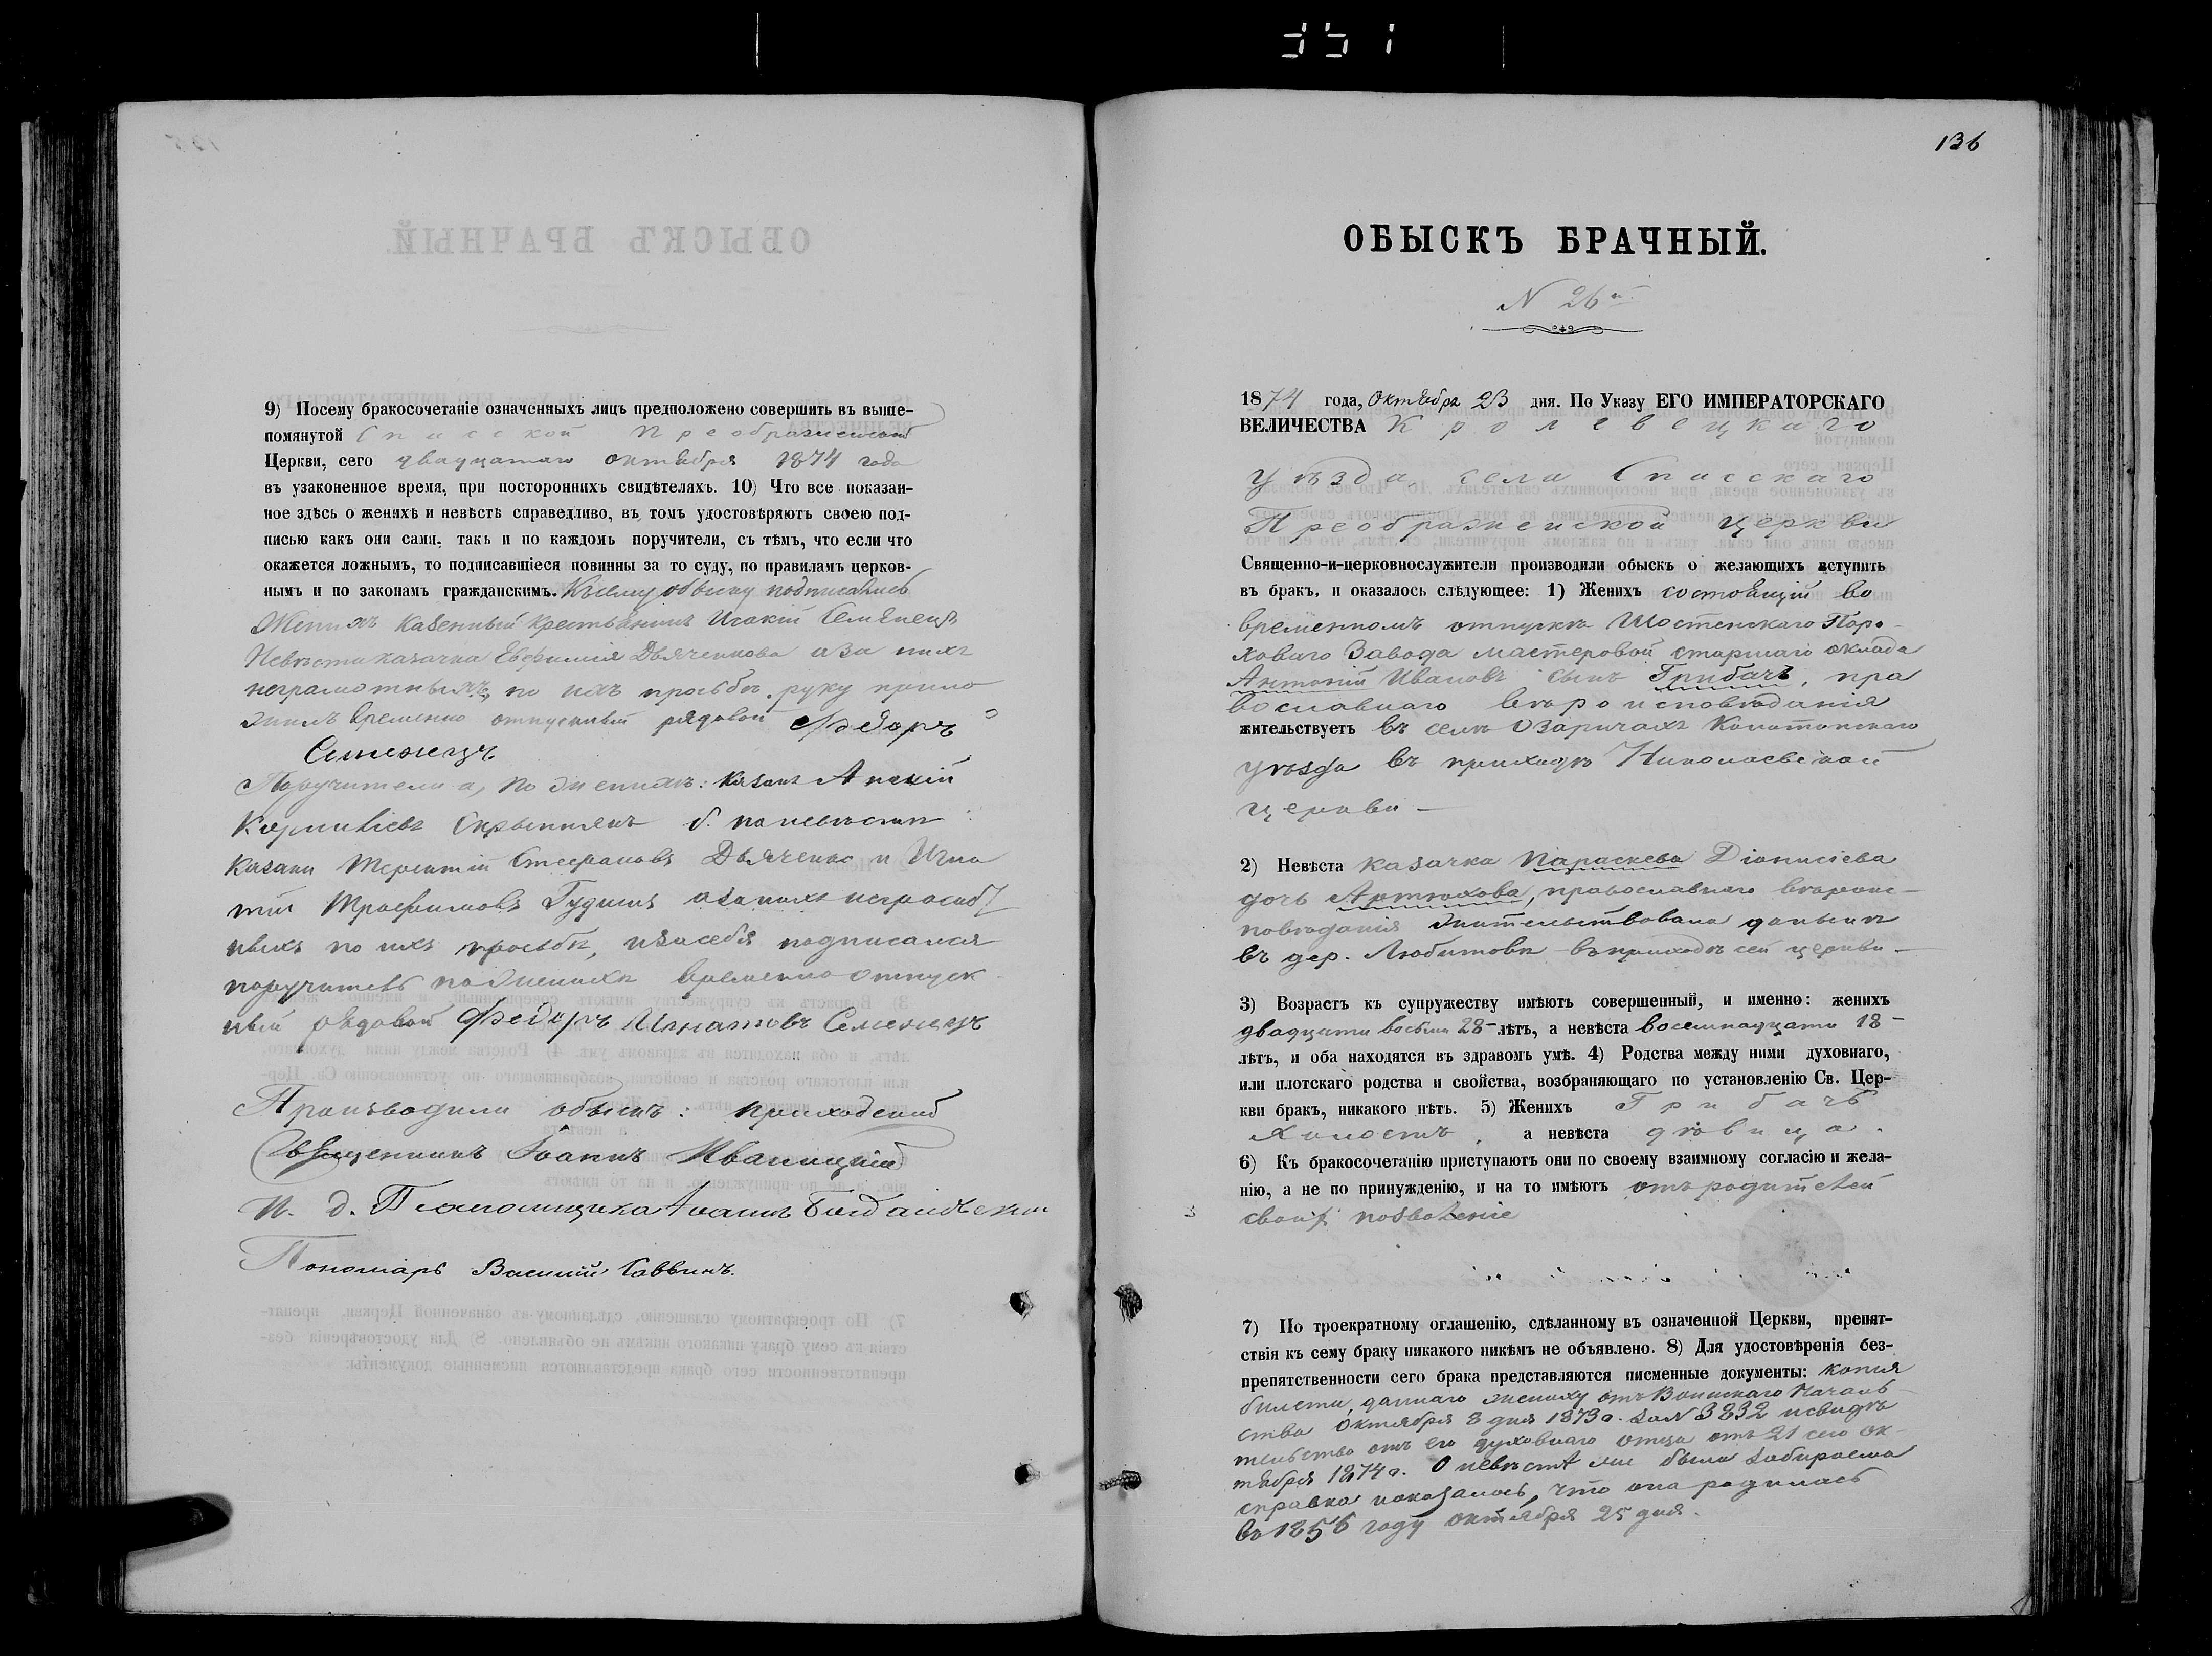 9) Посему бракосочетаніе означенныхъ лицъ предположено совершить въ выше-
помянутой Спасской Преображенской
Церкви, сего двадцатаго октября 1874 года
въ узаконенное время, при постороннихъ свидѣтеляхъ. 10) Что все показан-
ное здѣсь о женихѣ и невѣстѣ справедливо, въ томъ удостовѣряютъ своею под-
писью какъ они сами, такъ и по каждомъ поручители, съ тѣмъ, что если что
окажется ложнымъ, то подписавшіеся повинны за то суду, по правиламъ церков-
нымъ и по законамъ гражданскимъ. Къ сему обыску подписались
Женихъ казенный крестьянинъ Исакій Семенецъ
Невѣста казачка Евфимія Дьяченкова а за нихъ
неграмотныхъ, по ихъ просьбѣ, руку прило
жилъ временно отпускной рядовой Ѳедоръ
Семенецъ
Поручители а, по женихѣ: казакъ
Корниліевъ б. по невѣстѣ:
казаки Терентій Стефановъ Дьяченко и Игна
тій Трофимовъ а за нихъ неграмот
ныхъ по ихъ просьбѣ, и за себя подписался
поручитель по женихѣ временно отпуск
ный рядовой Ѳедоръ Игнатовъ Семенецъ
Производили обыскъ: приходскій
Священникъ Іоаннъ Иваницкій
И. д. Псаломщика Іоаннъ
Пономарь Василій Саввинъ.
136
ОБЫСКЪ БРАЧНЫЙ.
N 26й
1874 года, Октября 23 дня. По Указу ЕГО ИМПЕРАТОРСКАГО
ВЕЛИЧЕСТВА Кролевецкаго
уѣзда, села Спасскаго
Преображенской церкви
Священно-и-церковнослужители производили обыскъ о желающихъ вступить
въ бракъ, и оказалось слѣдующее: 1) Женихъ состоящій во
временномъ отпускѣ Шостенскаго Поро-
ховаго Завода мастеровой старшаго оклада
Антоній Ивановъ сынъ Грибачъ, пра
вославнаго вѣроисповѣданія
жительствуетъ въ селѣ Озаричахъ Конотопскаго
уѣзда въ приходѣ Николаевской
церкви —
2) Невѣста казачка Параскева Діонисіева
дочь Артюхова, православнаго вѣроис-
повѣданія жительствовала доныне
въ дер. Любитовѣ въ приходѣ сей церкви —
3) Возрастъ къ супружеству имѣютъ совершенный, и именно: женихъ
двадцати восьми 28 - лѣтъ, а невѣста восемнадцати 18 -
лѣтъ, и оба находятся въ здравомъ умѣ. 4) Родства между ними духовнаго,
или плотскаго родства и свойства, возбраняющаго по установленію Св. Цер-
кви бракъ, никакого нѣтъ. 5) Женихъ Грибачъ
холостъ, а невѣста дѣвица.
6) Къ бракосочетанію приступаютъ они по своему взаимному согласію и жела-
нію, а не по принужденію, и на то имѣютъ отъ родителей
своихъ позволеніе
7) По троекратному оглашенію, сдѣланному въ означенной Церкви, препят-
ствія къ сему браку никакого никѣмъ не объявлено. 8) Для удостовѣренія без-
препятственности сего брака представляются писменные документы: копія
билета, даннаго жениху отъ Воинскаго Началь-
ства октября 8 дня 1873 г. за N 3832 и свидѣ
тельство отъ его духовнаго отца отъ 21 сего ок-
тября 1874 г. О невѣстѣ же была забираема
справка и оказалось, что она родилась
въ 1856 году октября 25 дня.